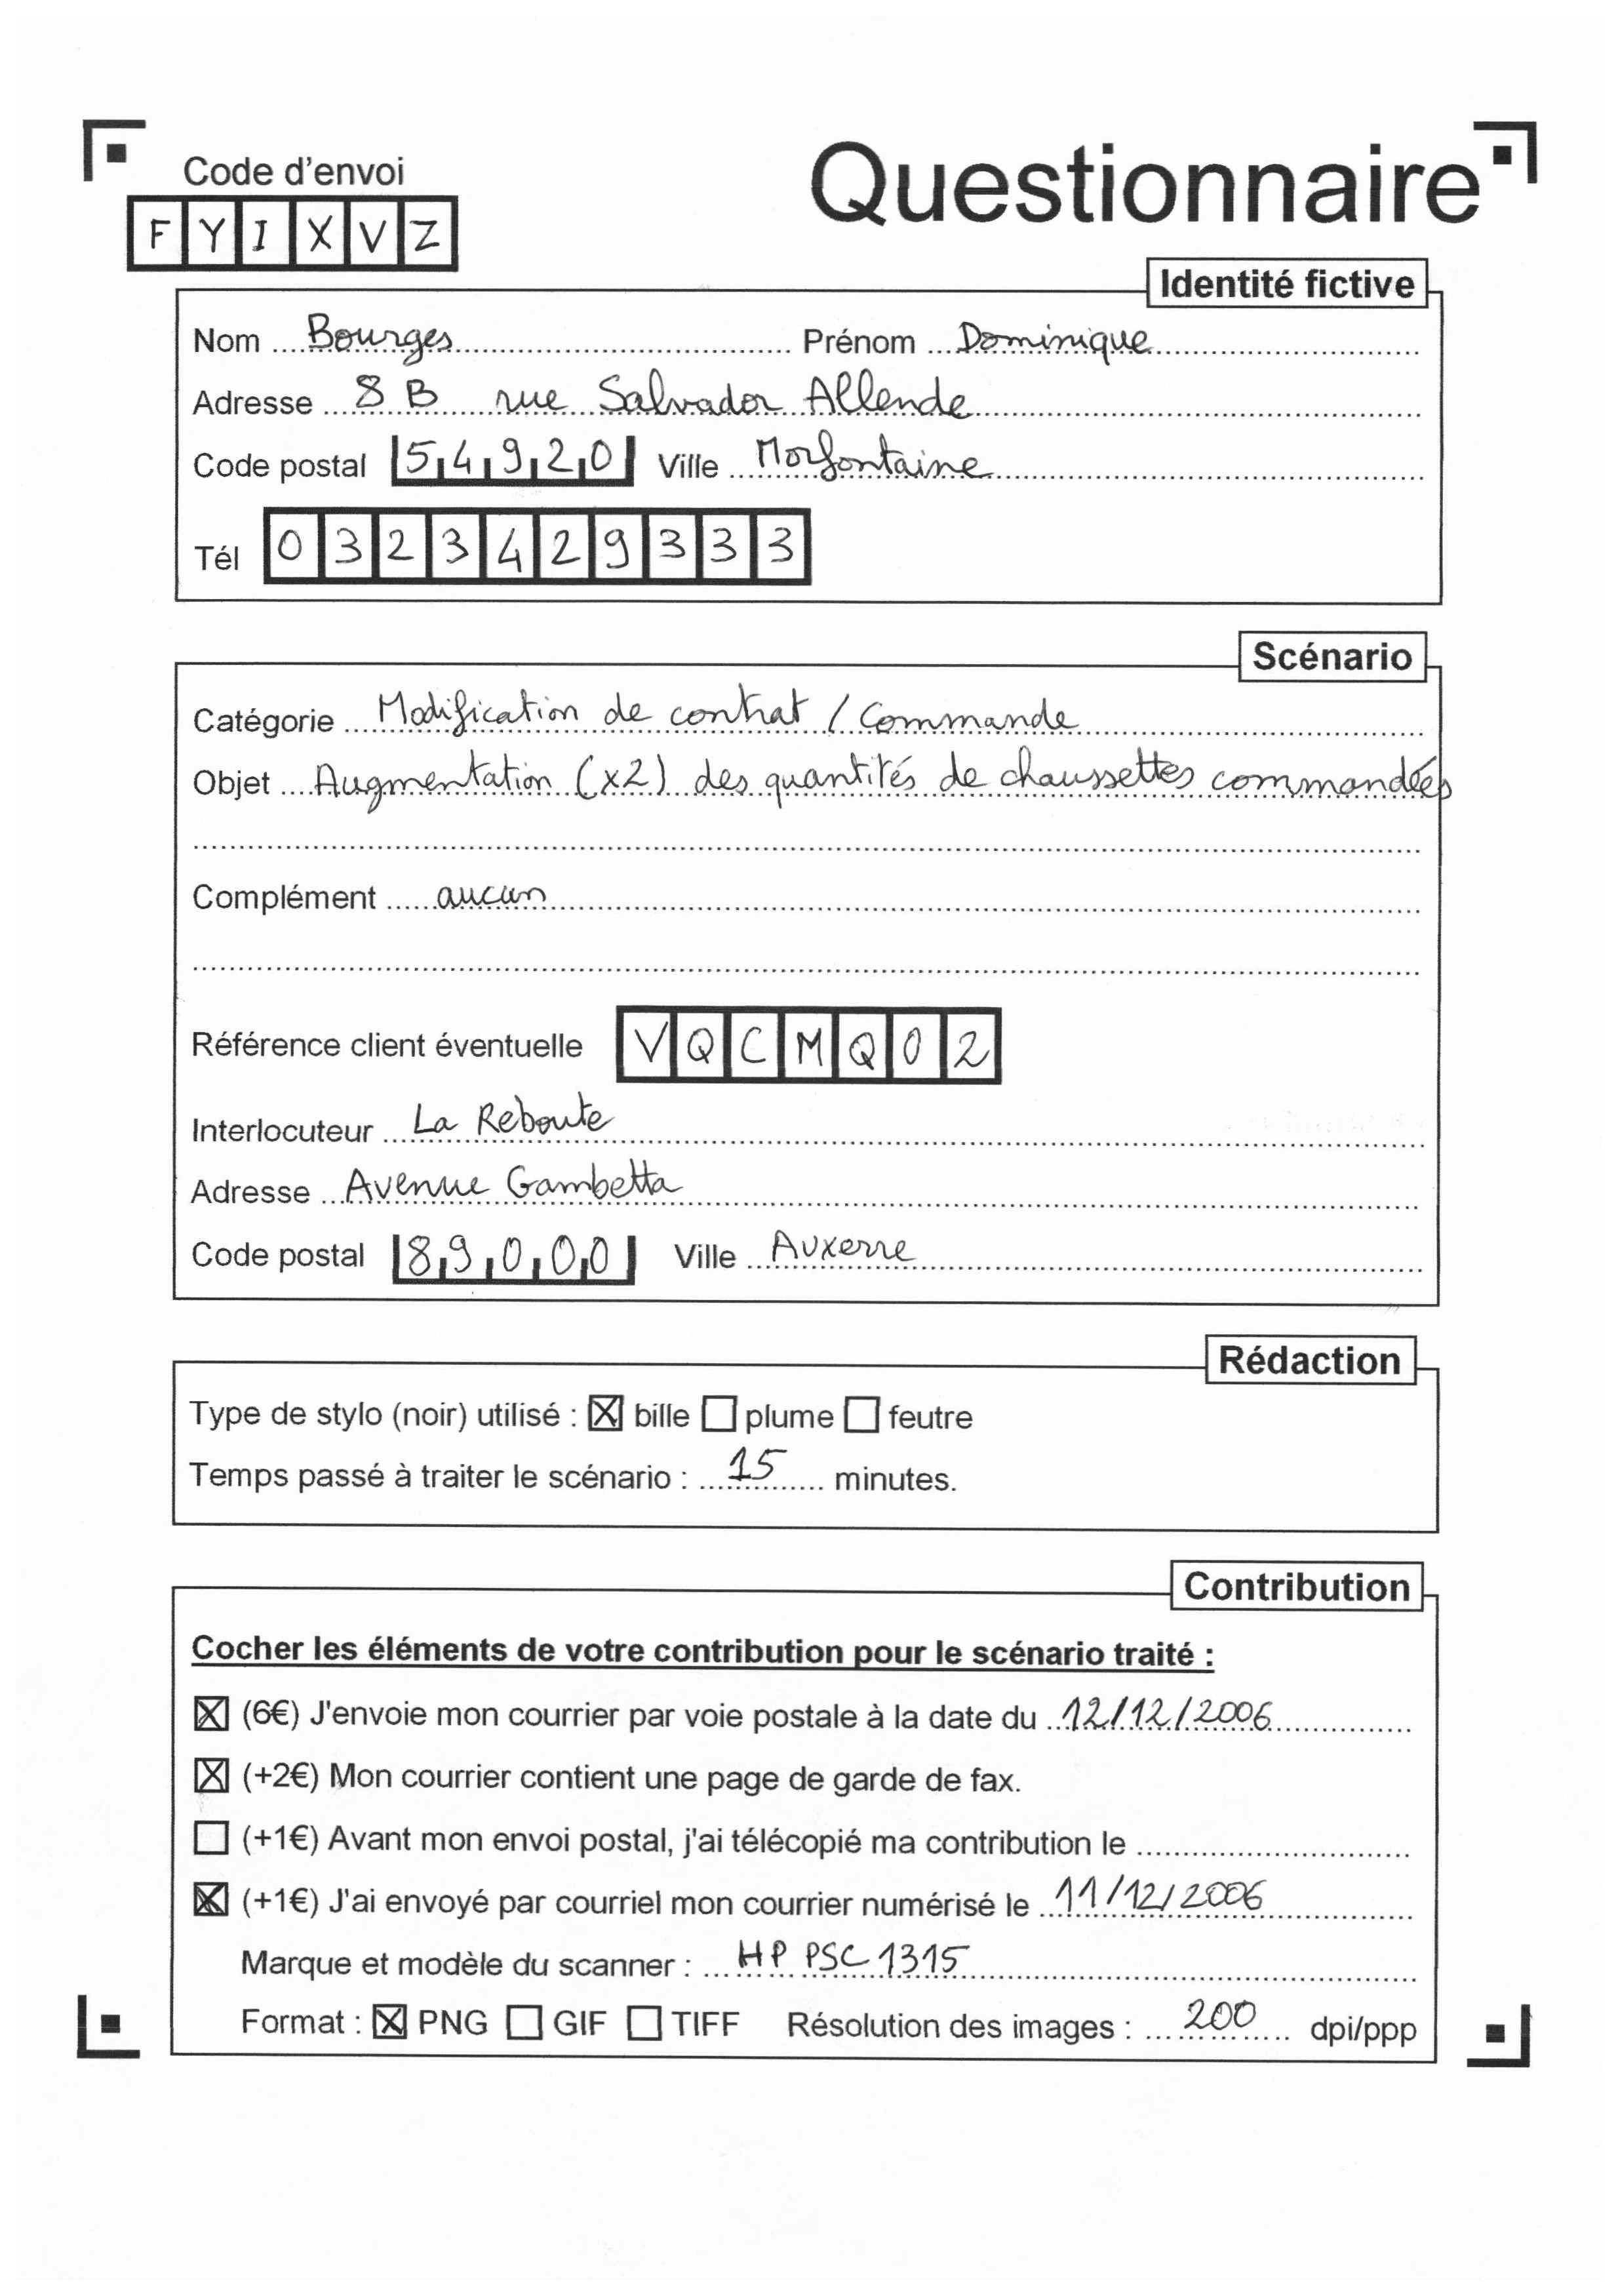 Code d'envoi
Questionnaire
F Y I X V Z
Identité fictive
Nom Bourges Prénom Dominique
Adresse 8 B rue Salvador Allende
Code postal 54920 Ville Morfontaine
Tél 0323429333
Scénario
Catégorie Modification de contrat / Commande
Objet Augmentation (x2) des quantités de chaussettes commandées
Complément aucun
Référence client éventuelle VQCMQ02
Interlocuteur La Reboute
Adresse Avenue Gambetta
Code postal 89000 Ville Auxerre
Rédaction
Type de stylo (noir) utilisé : ☒ bille ☐ plume ☐ feutre
Temps passé à traiter le scénario : 15 minutes.
Contribution
Cocher les éléments de votre contribution pour le scénario traité :
☒ (6€) J'envoie mon courrier par voie postale à la date du 12/12/2006
☒ (+2€) Mon courrier contient une page de garde de fax.
☐ (+1€) Avant mon envoi postal, j'ai télécopié ma contribution le
☒ (+1€) J'ai envoyé par courriel mon courrier numérisé le 11/12/2006
Marque et modèle du scanner : HP PSC 1315
Format : ☒ PNG ☐ GIF ☐ TIFF Résolution des images : 200 dpi/ppp